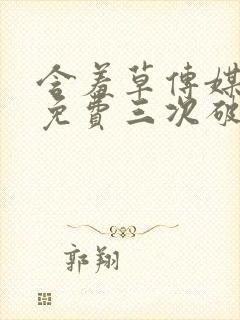 含羞草傳媒
免費三次破
郭翔